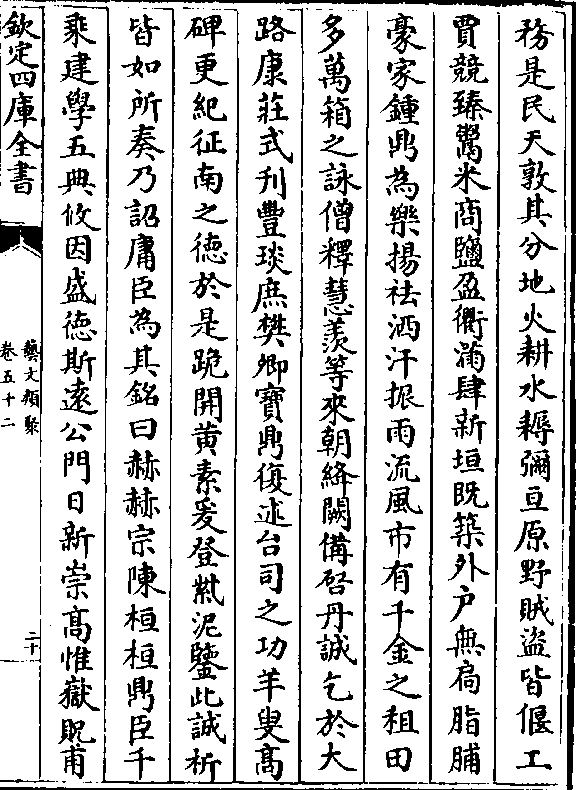 務是民天敦其分地火耕水耨彌亘原野賊盗皆偃工
賈競臻鬻米商鹽盈衢滿肆新垣既築外户無扃脂脯
豪家鍾鼎為樂揚袪洒汗振雨流風市有千金之租田
多萬箱之詠僧釋慧羨等來朝絳闕備啓丹誠乞於大
路康莊式刋豐琰庶樊卿寶鼎復述台司之功羊叟髙
碑更紀征南之徳於是跪開黄素爰登紫泥鑒此誠祈
皆如所奏乃詔庸臣為其銘曰赫赫宗陳桓桓鼎臣千
乗建學五典攸因盛徳斯逺公門日新崇髙惟嶽貺甫
欽定四庫全書
藝文類聚
卷五十二
二十